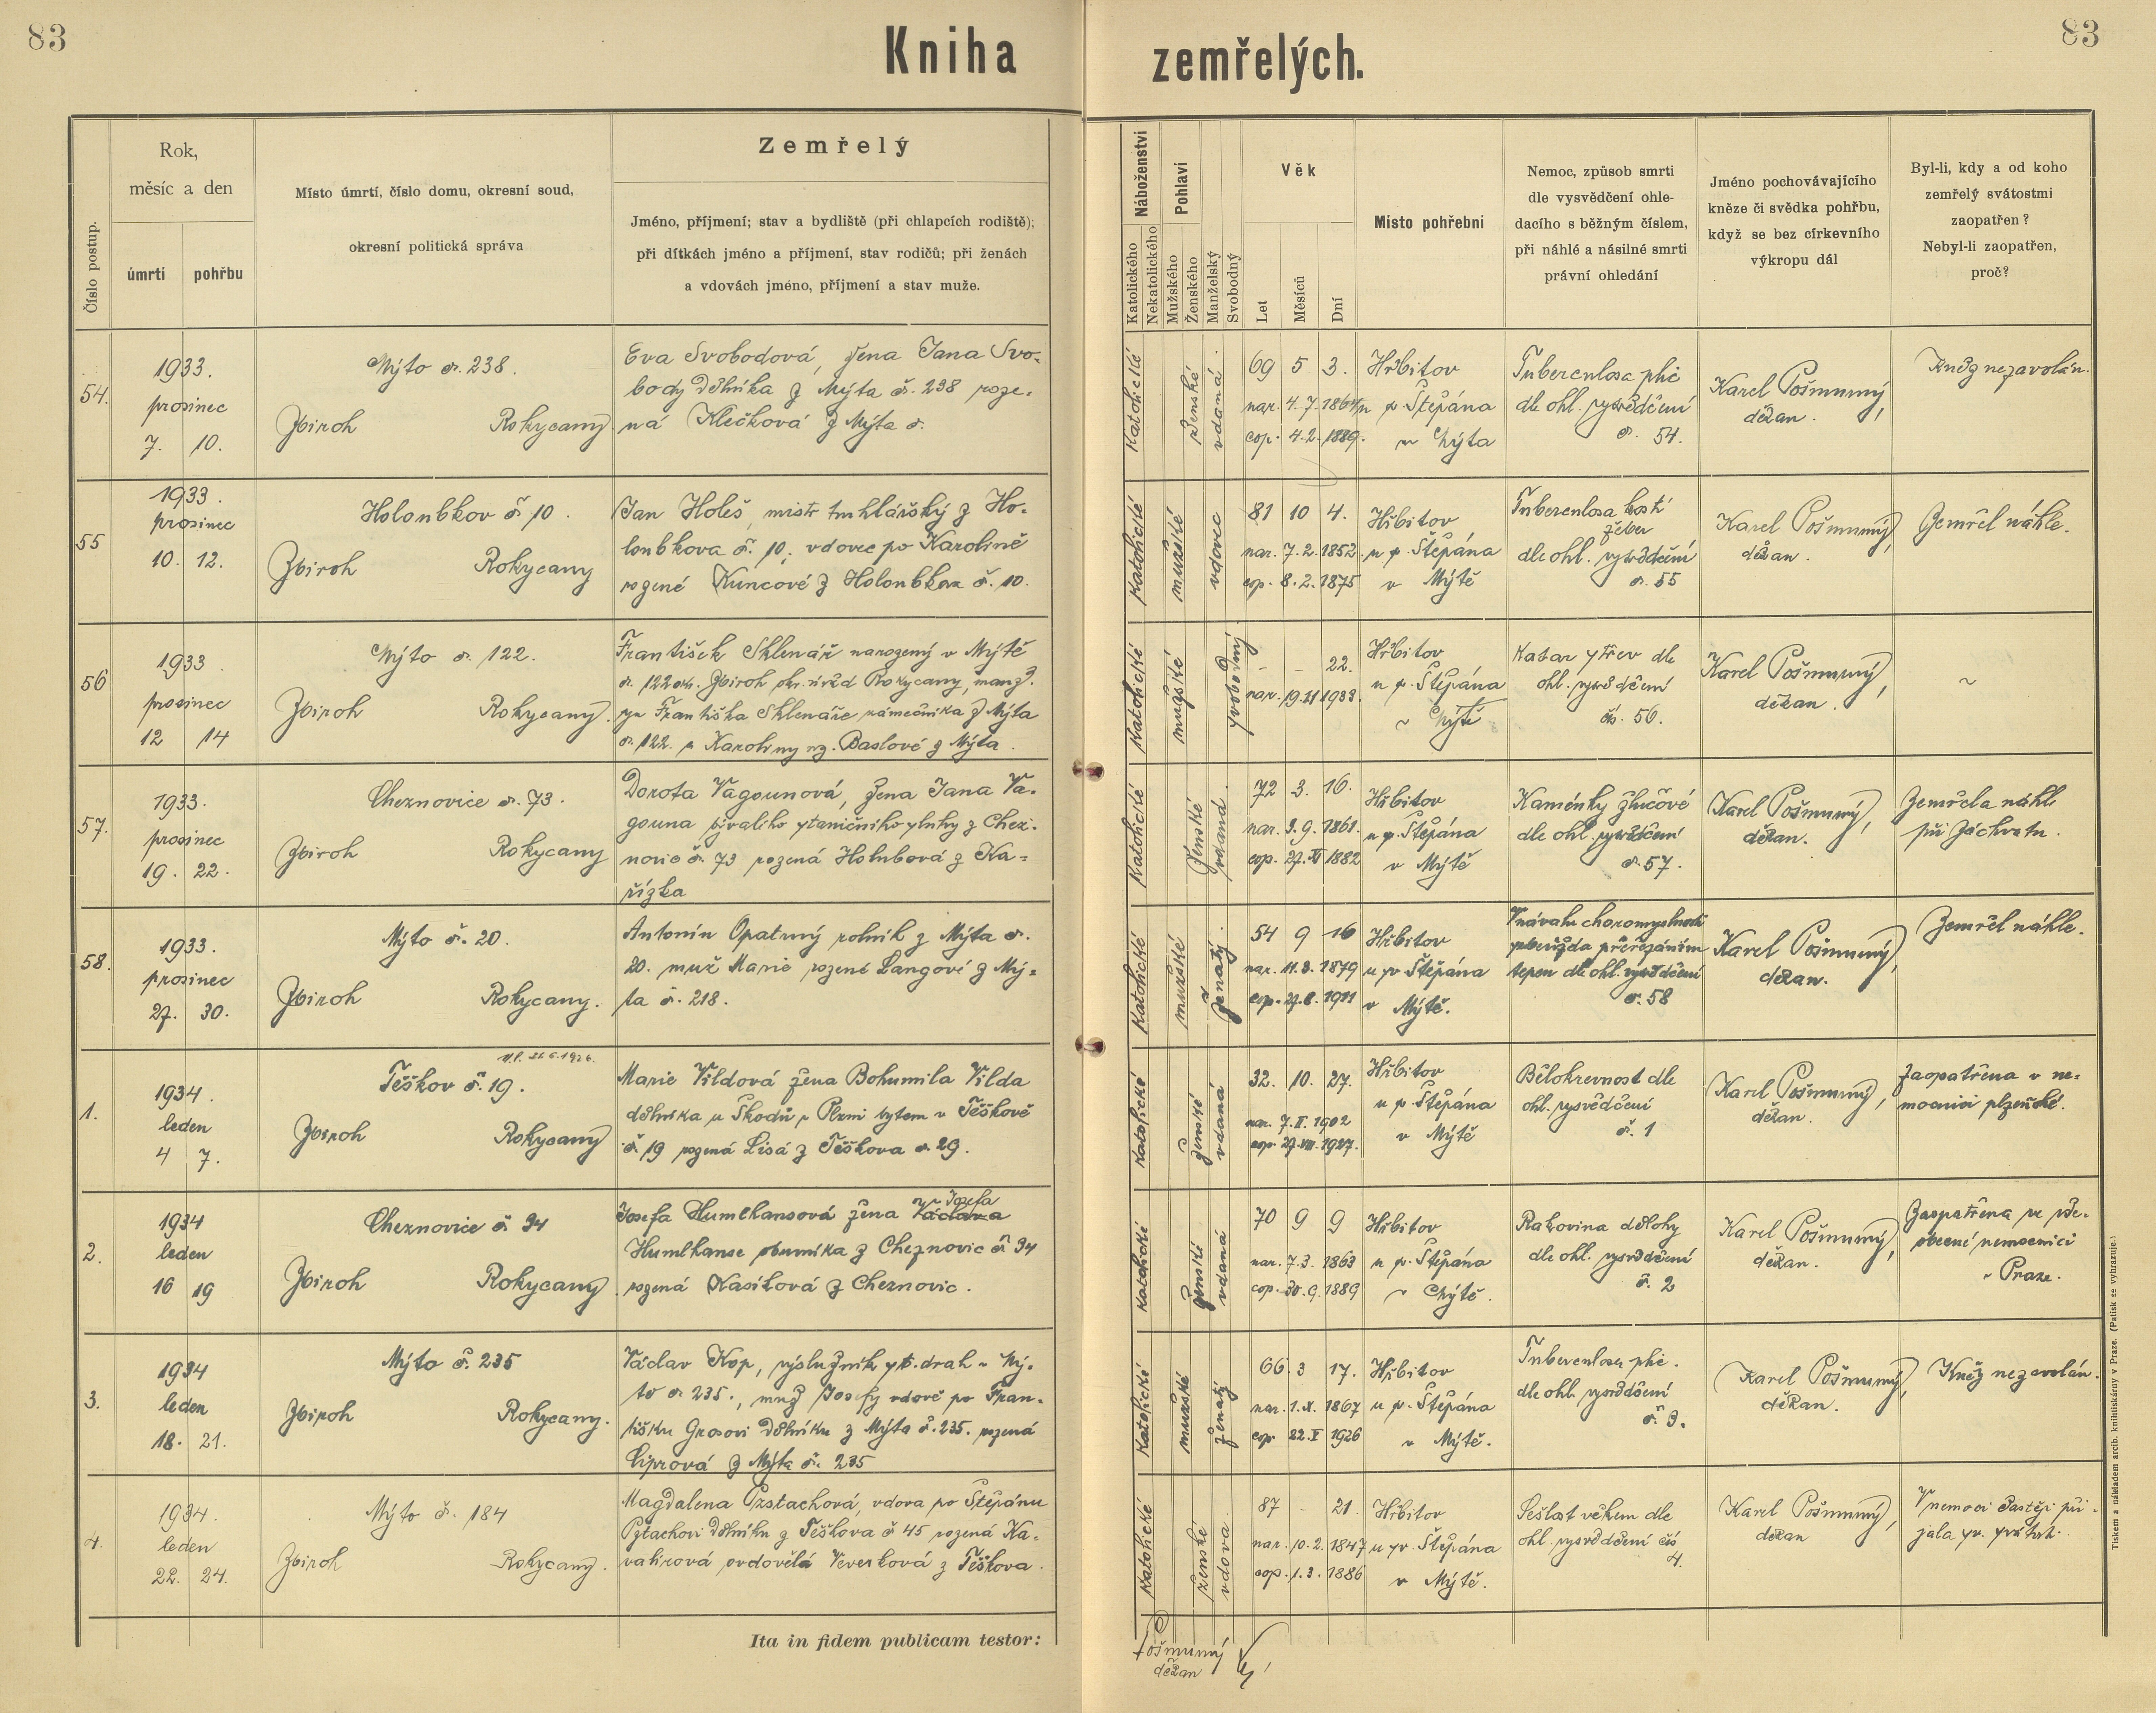 83
Kniha zemřelých.
83
Číslo postup.
Rok,
měsíc a den
úmrtí
pohřbu
Místo úmrtí, číslo domu, okresní soud,
okresní politická správa
Zemřelý
Jméno, příjmení; stav a bydliště (při chlapcích rodiště);
při dítkách jméno a příjmení, stav rodičů; při ženách
a vdovách jméno, příjmení a stav muže.
Náboženství
Katolického
Nekatolického
Pohlaví
Mužského
Ženského
Manželský
Svobodný
Věk
Let
Měsíců
Dní
Místo pohřební
Nemoc, způsob smrti
dle vysvědčení ohle-
dacího s běžným číslem,
při náhlé a násilné smrti
právní ohledání
Jméno pochovávajícího
kněze či svědka pohřbu,
když se bez církevního
výkropu dál
Byl-li, kdy a od koho
zemřelý svátostmi
zaopatřen?
Nebyl-li zaopatřen,
proč?
54.
1933.
prosinec
7. 10.
Mýto č. 238.
Zbiroh Rokycany
Eva Svobodová, žena Jana Svo-
body dělníka z Mýta č. 238 roze-
ná Klečková z Mýta č.
Katolické
ženské
vdaná.
69 5 3.
nar. 4. 7. 1864
cop. 4. 2. 1889.
Hřbitov
u sv. Štěpána
v Mýtě
Tuberculosa plic
dle ohl. vysvědčení
č. 54.
Karel Pošmurný,
děkan.
Kněz nezavolán.
55
1933.
prosinec
10. 12.
Holoubkov č. 10.
Zbiroh Rokycany
Jan Holeš, mistr truhlářský z Ho-
loubkova č. 10, vdovec po Karolině
rozené Kuncové z Holoubkova č. 10.
Katolické
mužské
vdovec
81 10 4.
nar. 7. 2. 1852
cop. 8. 2. 1875
Hřbitov
u sv. Štěpána
v Mýtě
Tuberculosa kostí
žeber
dle ohl. vysvědčení
č. 55
Karel Pošmurný,
děkan.
Zemřel náhle.
56
1933.
prosinec
12 14
Mýto č. 122.
Zbiroh Rokycany.
František Sklenář narozený v Mýtě
č. 122 okr. Zbiroh okr. úřad Rokycany, manž.
syn Františka Sklenáře zámečníka z Mýta
č. 122. a Karoliny roz. Baslové z Mýta.
Katolické
mužské
svobodný
- - 22.
nar. 19. XI 1933.
Hřbitov
u sv. Štěpána
v Mýtě
Katar střev dle
ohl. vysvědčení
čís. 56.
Karel Pošmurný,
děkan.
~
57.
1933.
prosinec
19. 22.
Cheznovice č. 73.
Zbiroh Rokycany
Dorota Vagounová, žena Jana Va-
gouna bývalého staničního sluhy z Chez-
novic č. 73 rozená Holubová z Ka-
řízka
Katolické
ženské
vdaná.
72 3. 16.
nar. 3. 9. 1861.
cop. 27. XI 1882
Hřbitov
u sv. Štěpána
v Mýtě
Kaménky žlučové
dle ohl. vysvědčení
č. 57.
Karel Pošmurný,
děkan.
Zemřela náhle
při záchvatu.
58.
1933.
prosinec
27. 30.
Mýto č. 20.
Zbiroh Rokycany.
Antonín Opatrný rolník z Mýta č.
20. muž Marie rozené Langové z Mý-
ta č. 218.
Katolické
mužské
ženatý.
54 9 16
nar. 11. 3. 1879
cop. 27. 8. 1911
Hřbitov
u sv. Štěpána
v Mýtě.
V návalu choromyslnosti
sebevražda přeřezáním
tepen dle ohl. vysvědčení
č. 58
Karel Pošmurný,
děkan.
Zemřel náhle.
1.
1934.
leden
4 7.
Těškov č. 19.
Zbiroh Rokycany
Marie Vildová žena Bohumila Vilda
dělníka u Škodů v Plzni bytem v Těškově
č 19 rozená Lisá z Těškova č. 29.
Katolické
ženské
vdaná
32. 10. 27.
nar. 7. II. 1902
cop. 27. VIII. 1927.
Hřbitov
u sv. Štěpána
v Mýtě
Bělokrevnost dle
ohl. vysvědčení
č. 1
Karel Pošmurný,
děkan.
Zaopatřena v ne-
mocnici plzeňské.
2.
1934
leden
16 19
Cheznovice č. 94
Zbiroh Rokycany
Josefa Humlhansová žena Václava Josefa
Humlhanse obuvníka z Cheznovic č. 94
rozená Kasíková z Cheznovic.
Katolické
ženské
vdaná
70 9 9
nar. 7. 3. 1863
cop. 30. 9. 1889
Hřbitov
u sv. Štěpána
v Mýtě.
Rakovina dělohy
dle ohl. vysvědčení
č. 2
Karel Pošmurný,
děkan.
Zaopatřena ve vše-
obecné nemocnici
v Praze.
3.
1934
leden
18. 21.
Mýto č. 235
Zbiroh Rokycany.
Václav Kop, výslužník st. drah v Mý-
tě č. 235., muž Josefy vdově po Fran-
tišku Grosovi dělníku z Mýta č. 235. rozená
Ciprová z Mýta č. 235
Katolické
mužské
ženatý
66. 3 17.
nar. 1. X. 1867
cop. 22. V 1926
Hřbitov
u sv. Štěpána
v Mýtě.
Tuberculosa plic.
dle ohl. vysvědčení
č. 3.
Karel Pošmurný,
děkan.
Kněz nezavolán.
4.
1934.
leden
22. 24.
Mýto č. 184
Zbiroh Rokycany.
Magdalena Pstachová, vdova po Štěpánu
Pstachovi dělníku z Těškova č 45 rozená Ka-
valírová ovdovělá Veverková z Těškova.
Katolické
ženské
vdova.
87 - 21.
nar. 10. 2. 1847
cop. 1. 3. 1886
Hřbitov
u sv. Štěpána
v Mýtě.
Sešlost věkem dle
ohl. vysvědčení čís
4.
Karel Pošmurný,
děkan
V nemoci častěji při-
jala sv. svátosti.
Ita in fidem publicam testor:
Pošmurný
děkan
Tiskem a nákladem arcib. knihtiskárny v Praze. (Patisk se vyhrazuje.)